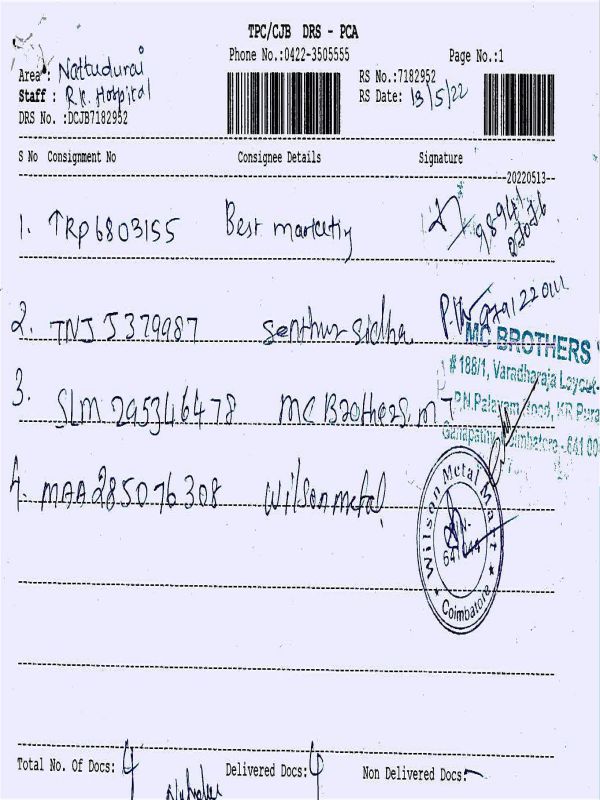 TPC/CJB DRS - PCA
Phone No.:0422-3505555 Page No.:1
Area : Nattudurai
Staff : R.K. Hospital
RS No.:7182952
RS Date: 13/5/22
DRS No. :DCJB7182952
S No Consignment No Consignee Details Signature
20220513
1. TRP6803155 Best marketing
2. TNJ J379987 Senthur sidha
MC BROTHERS
# 188/1, Varadharaja Layout
3. SLM 295346478 MC Brothers. MT
P.N.Palayam Road, KR Pura
Ganapathy, Coimbatore - 641 00
4. MAA285076308 Wilson metal
Wilson Metal Mart
PIN-
Coimbatore
Total No. Of Docs: 4 Delivered Docs: 4 Non Delivered Docs:-